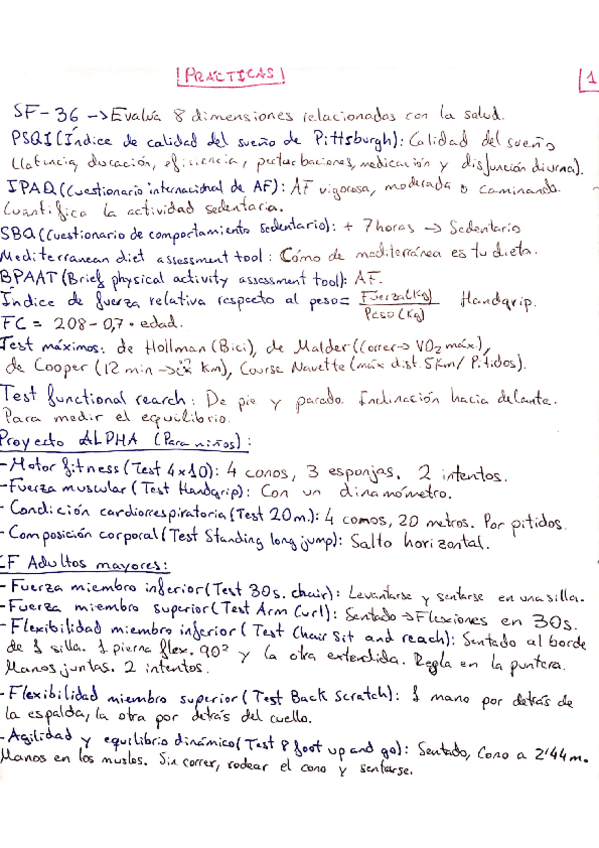 PRÁCTICAS
1
SF-36 -> Evalúa 8 dimensiones relacionadas con la salud.
PSQI (Índice de calidad del sueño de Pittsburgh): Calidad del sueño
(latencia, duración, eficiencia, perturbaciones, medicación y disfunción diurna).
IPAQ (Cuestionario internacional de AF): AF vigorosa, moderada o caminando.
Cuantifica la actividad sedentaria.
SBQ (Cuestionario de comportamiento sedentario): + 7 horas -> Sedentario
Mediterranean diet assessment tool: Cómo de mediterránea es tu dieta.
BPAAT (Brief physical activity assessment tool): AF.
Índice de fuerza relativa respecto al peso = Fuerza (Kg) / Peso (Kg) Handgrip.
FC = 208 - 0,7 · edad.
Test máximos: de Hollman (Bici), de Malder (Correr -> VO2 máx),
de Cooper (12 min -> km), Course Navette (máx dist. 5km / Pitidos).
Test functional rearch: De pie y parado. Inclinación hacia delante.
Para medir el equilibrio.
Proyecto ALPHA (Para niños):
- Motor fitness (Test 4x10): 4 conos, 3 esponjas. 2 intentos.
- Fuerza muscular (Test Handgrip): Con un dinamómetro.
- Condición cardiorrespiratoria (Test 20m.): 4 comos, 20 metros. Por pitidos.
- Composición corporal (Test Standing long jump): Salto horizontal.
CF Adultos mayores:
- Fuerza miembro inferior (Test 30s. chair): Levantarse y sentarse en una silla.
- Fuerza miembro superior (Test Arm Curl): Sentado -> Flexiones en 30s.
- Flexibilidad miembro inferior (Test Chair Sit and reach): Sentado al borde
de 1 silla. 1 pierna flex. 90º y la otra extendida. Regla en la puntera.
Manos juntas. 2 intentos.
- Flexibilidad miembro superior (Test Back Scratch): 1 mano por detrás de
la espalda, la otra por detrás del cuello.
- Agilidad y equilibrio dinámico (Test 8 foot up and go): Sentado, Cono a 2'44 m.
Manos en los muslos. Sin correr, rodear el cono y sentarse.